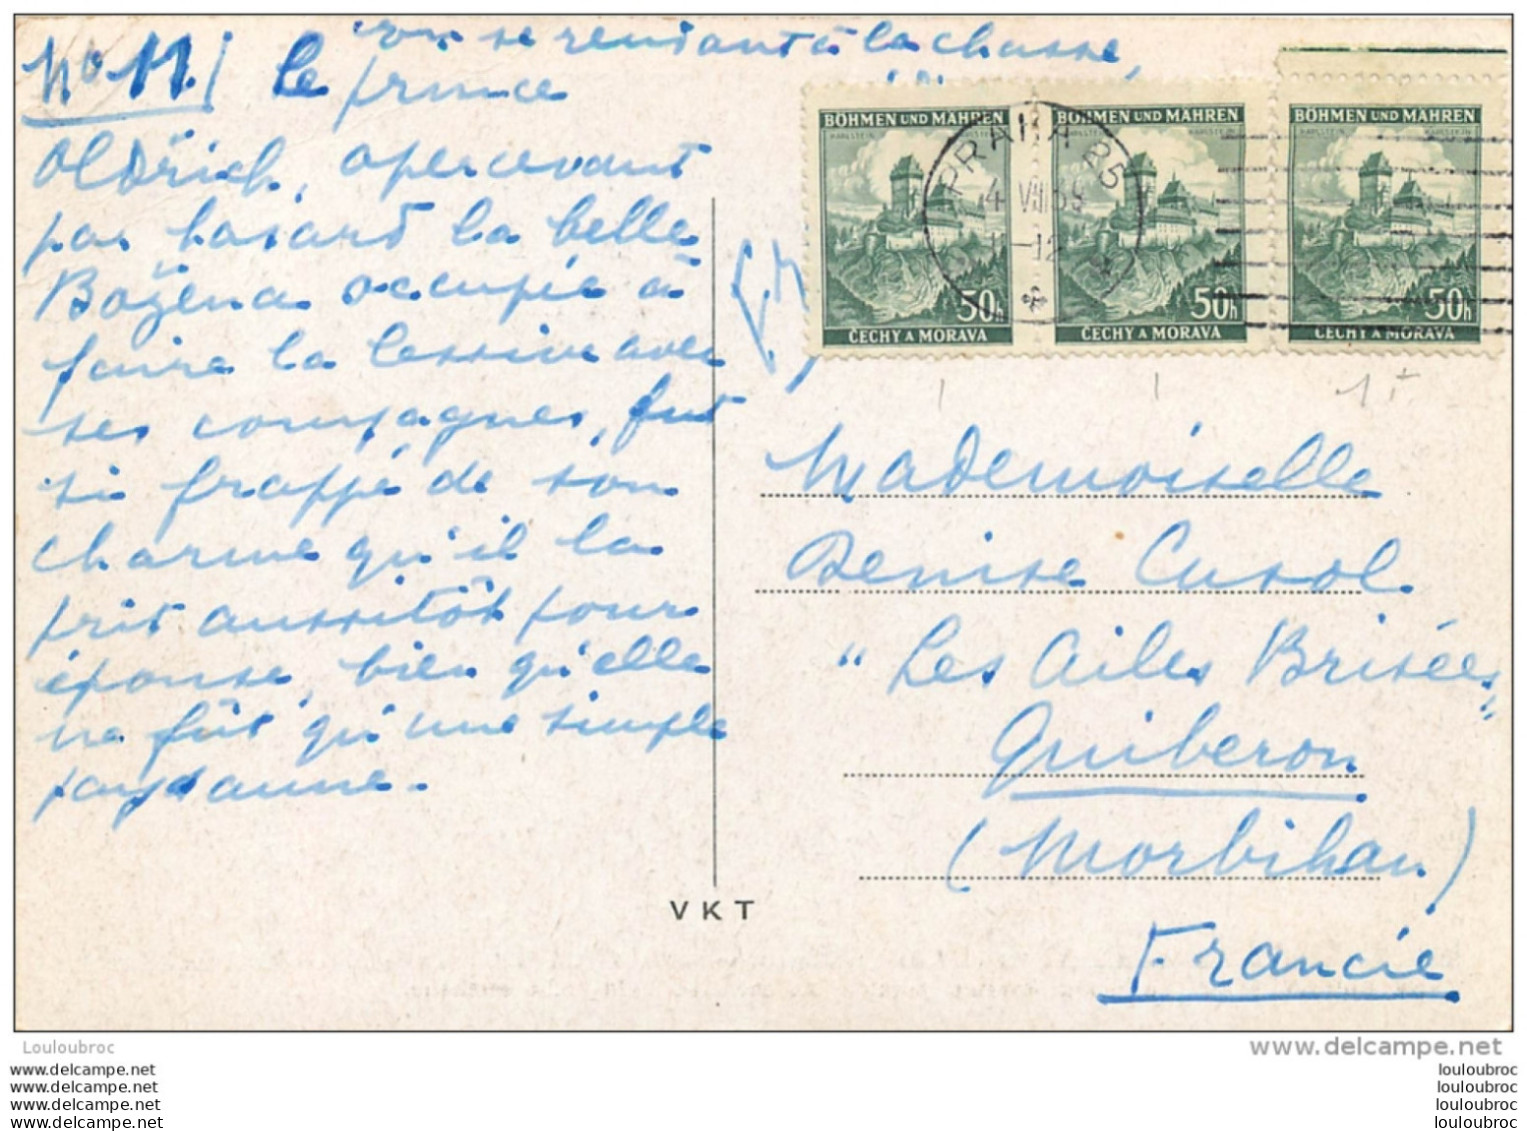 No 11/ Le prince
en se rendant à la chasse,
Oldřich, apercevant
par hasard la belle
Božena occupée à
faire la lessive avec
ses compagnes, fut
si frappé de son
charme qu'il la
prit aussitôt pour
épouse, bien qu'elle
ne fût qu'une simple
paysanne.
BÖHMEN UND MÄHREN
KARLSTEIN
50h
ČECHY A MORAVA
BÖHMEN UND MÄHREN
50h
ČECHY A MORAVA
BÖHMEN UND MÄHREN
KARLSTEIN
50h
ČECHY A MORAVA
PRAHA 25
4 VIII 39
-12
1+
Mademoiselle
Denise Cusol
"Les Ailes Brisées"
Quiberon
(Morbihan)
Francie
VKT
Louloubroc
www.delcampe.net
www.delcampe.net
www.delcampe.net
www.delcampe.net
www.delcampe.net
louloubroc
louloubroc
louloubroc
louloubroc